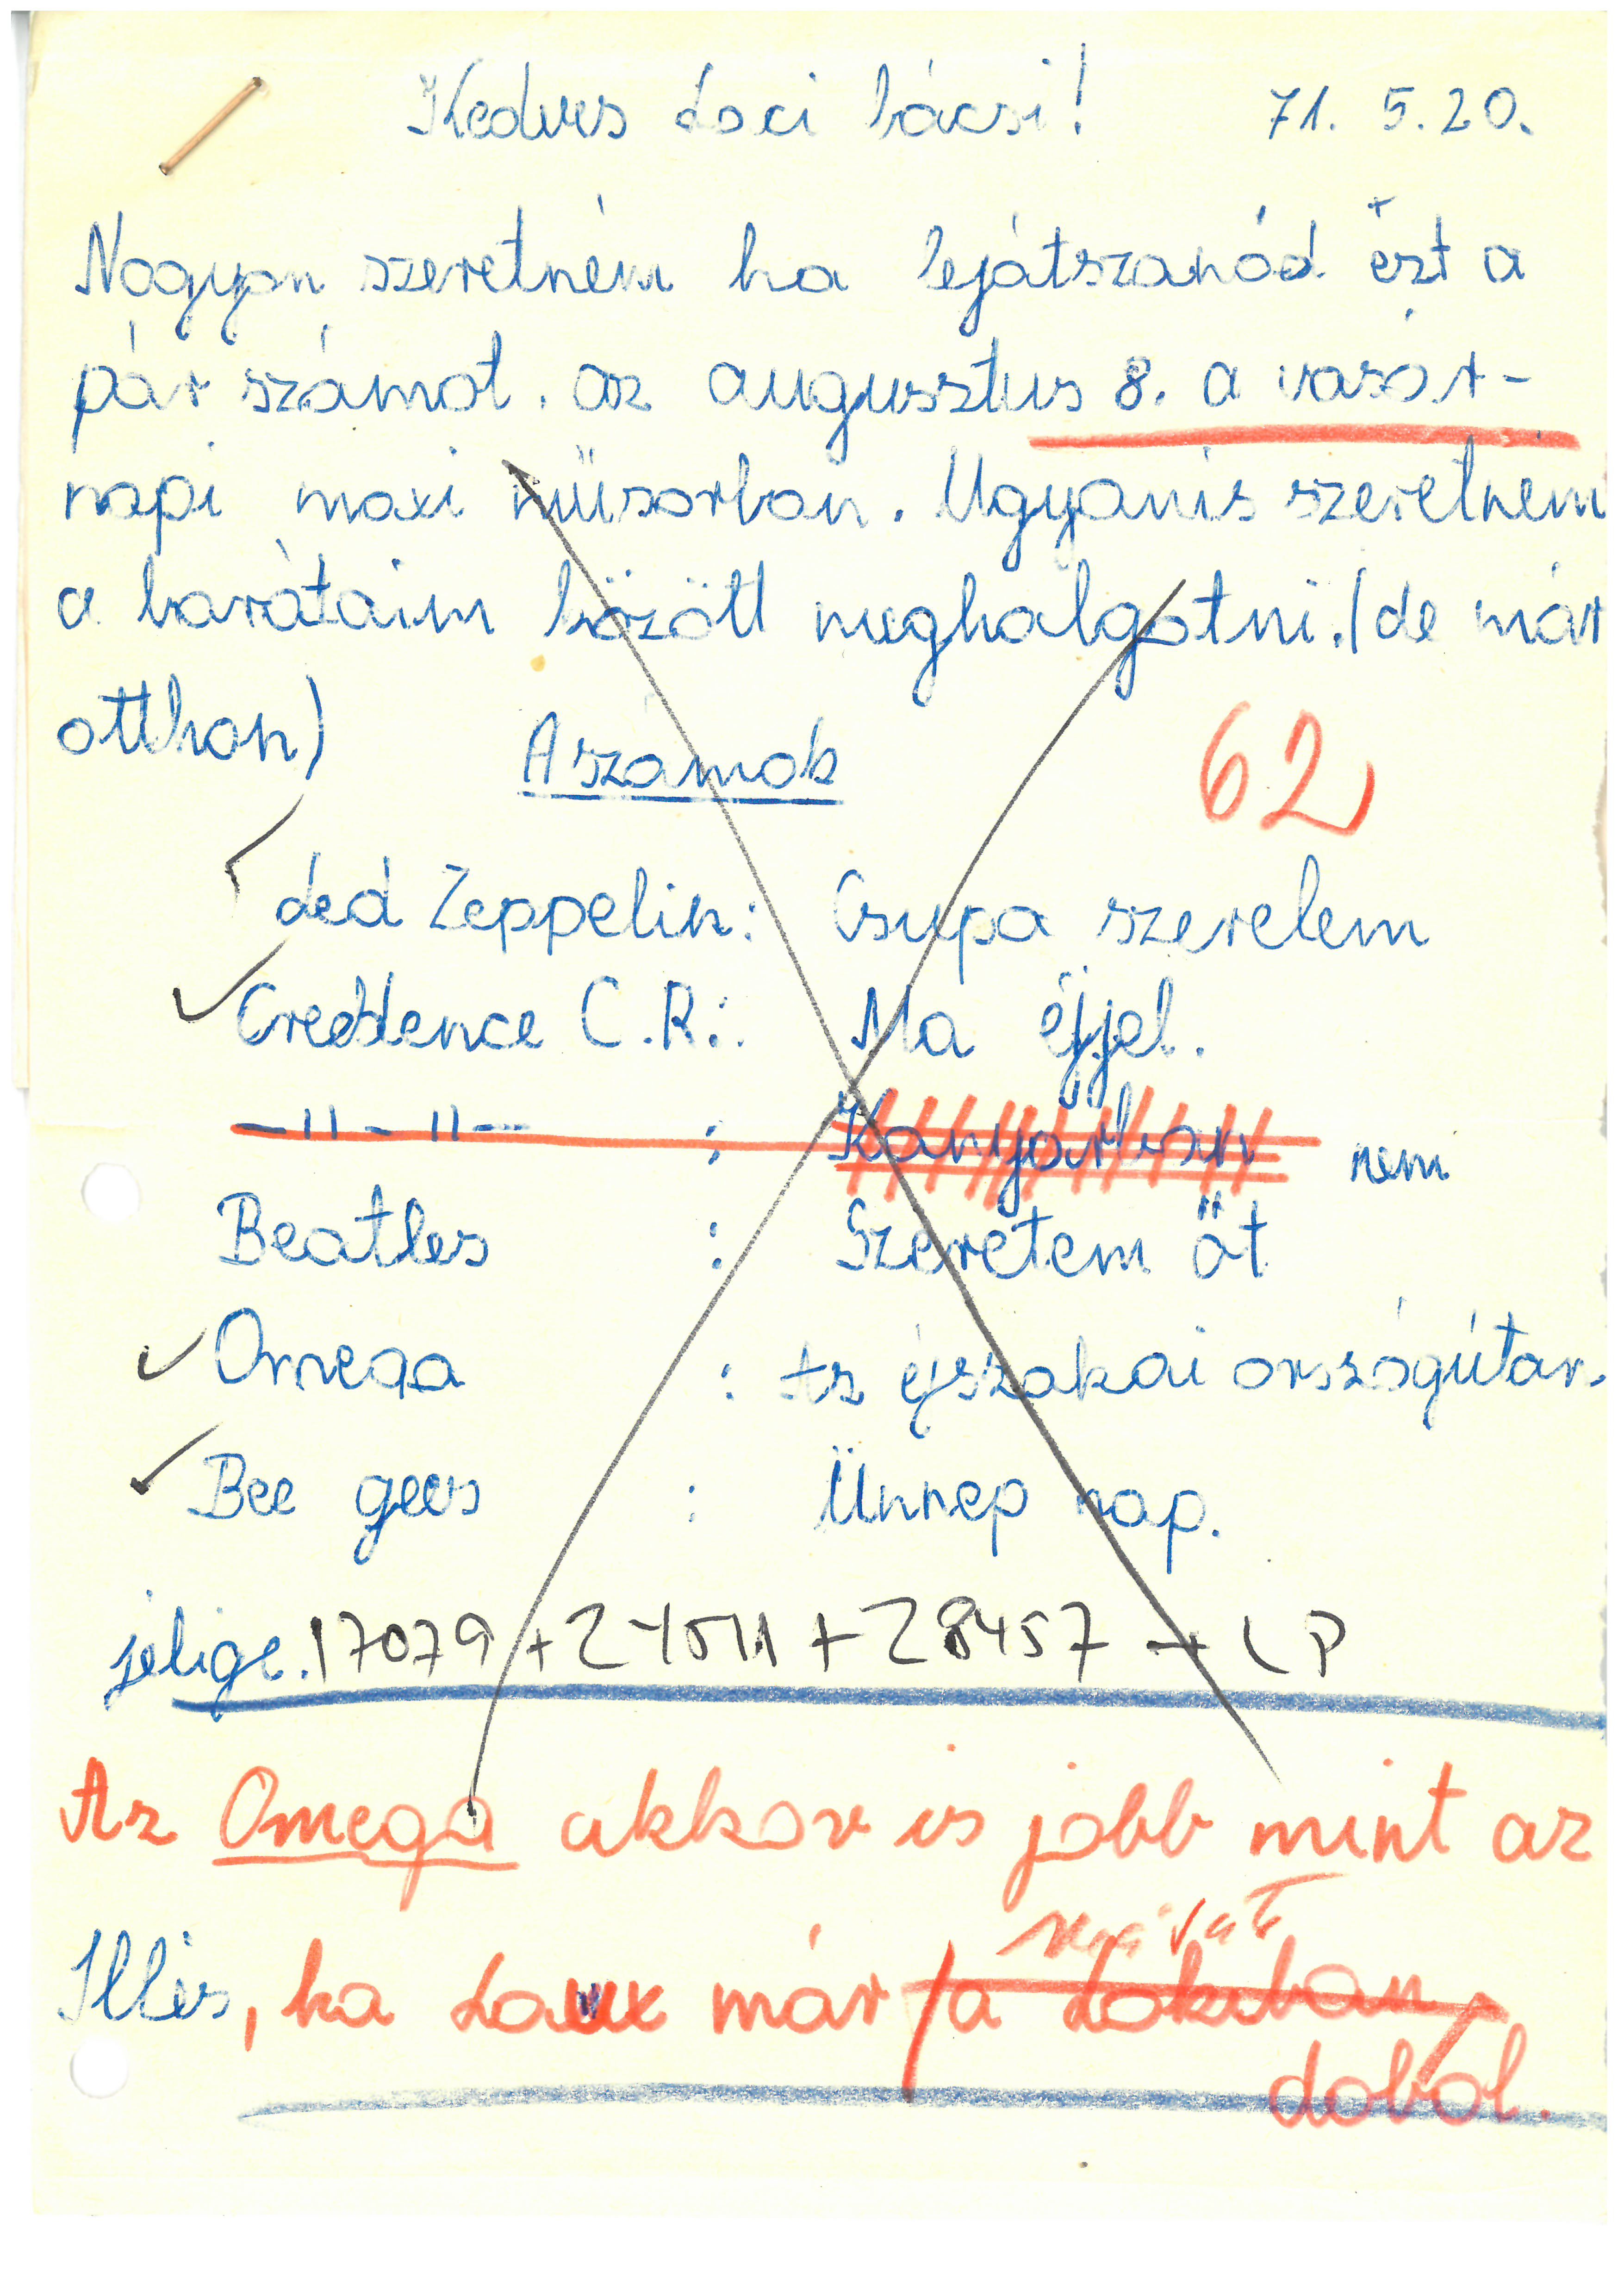 Kedves Laci bácsi! 71. 5. 20.
Nagyon szeretném ha lejátszanád ezt a
pár számot. az augusztus 8. a vasár-
napi maxi müsorban. Ugyanis szeretném
a barátaim között meghalgatni. (de már
otthon)
A számok
62
Led Zeppelin: Csupa szerelem
Creddence C.R.: Ma éjjel.
-"-"- : Kanyarban nem
Beatles : Szeretem őt
Omega : Az éjszakai országúton.
Bee gees : Ünnep nap.
jelige. 17079 + 24511 + 28457 + LP
Az Omega akkor is jobb mint az
Illés, ha Laux már a Lokiban
dobol.